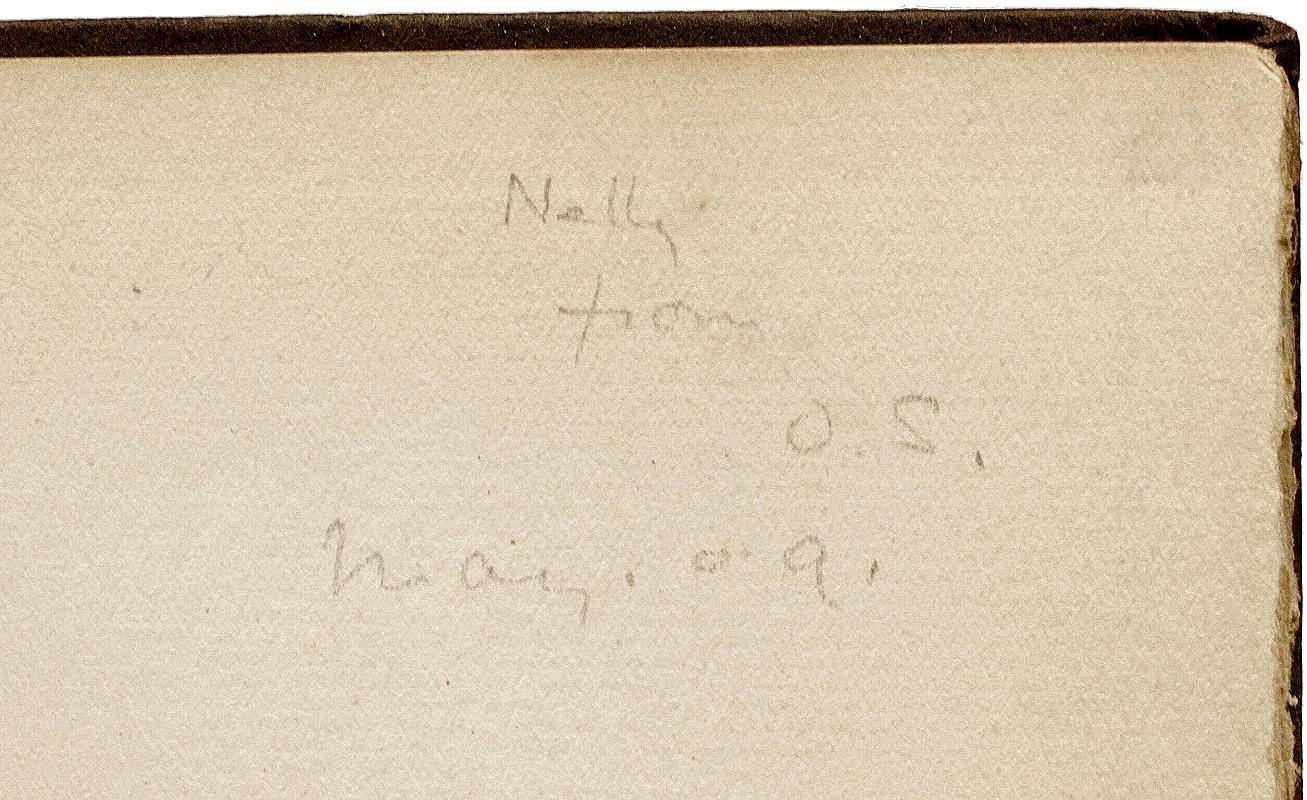 Nelly
from
O.S.
May. 09.